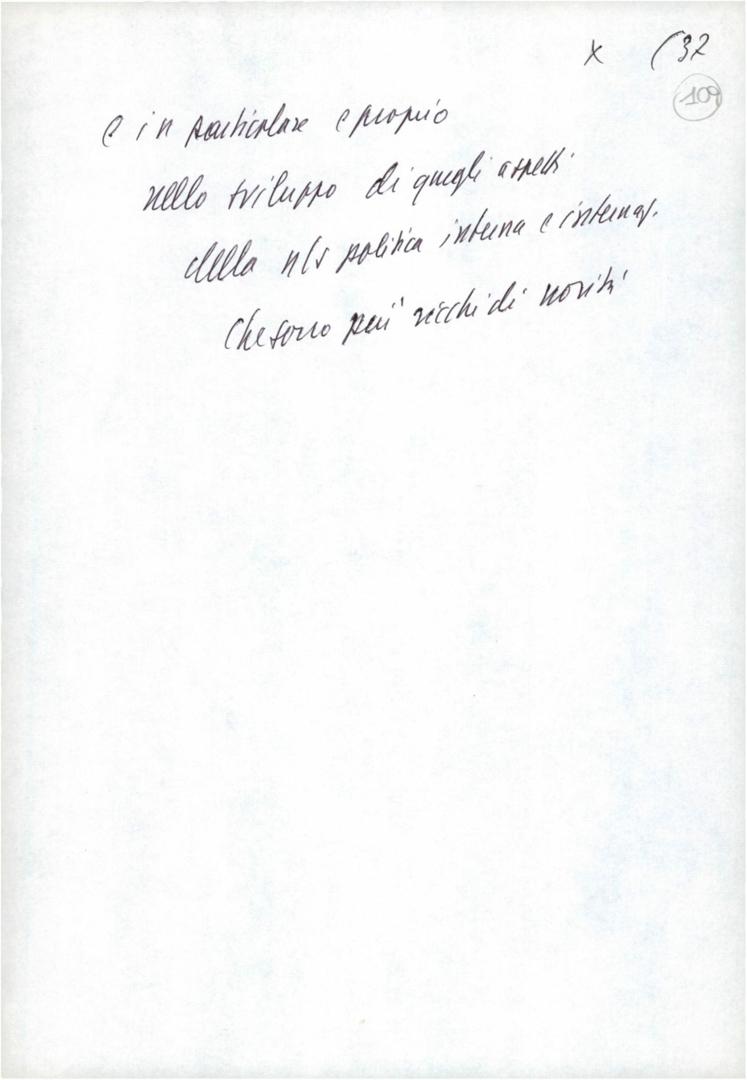 x (32
109
e in particolare e proprio
nello sviluppo di quegli aspetti
della n/s politica interna e internaz.
che sono più ricchi di novità